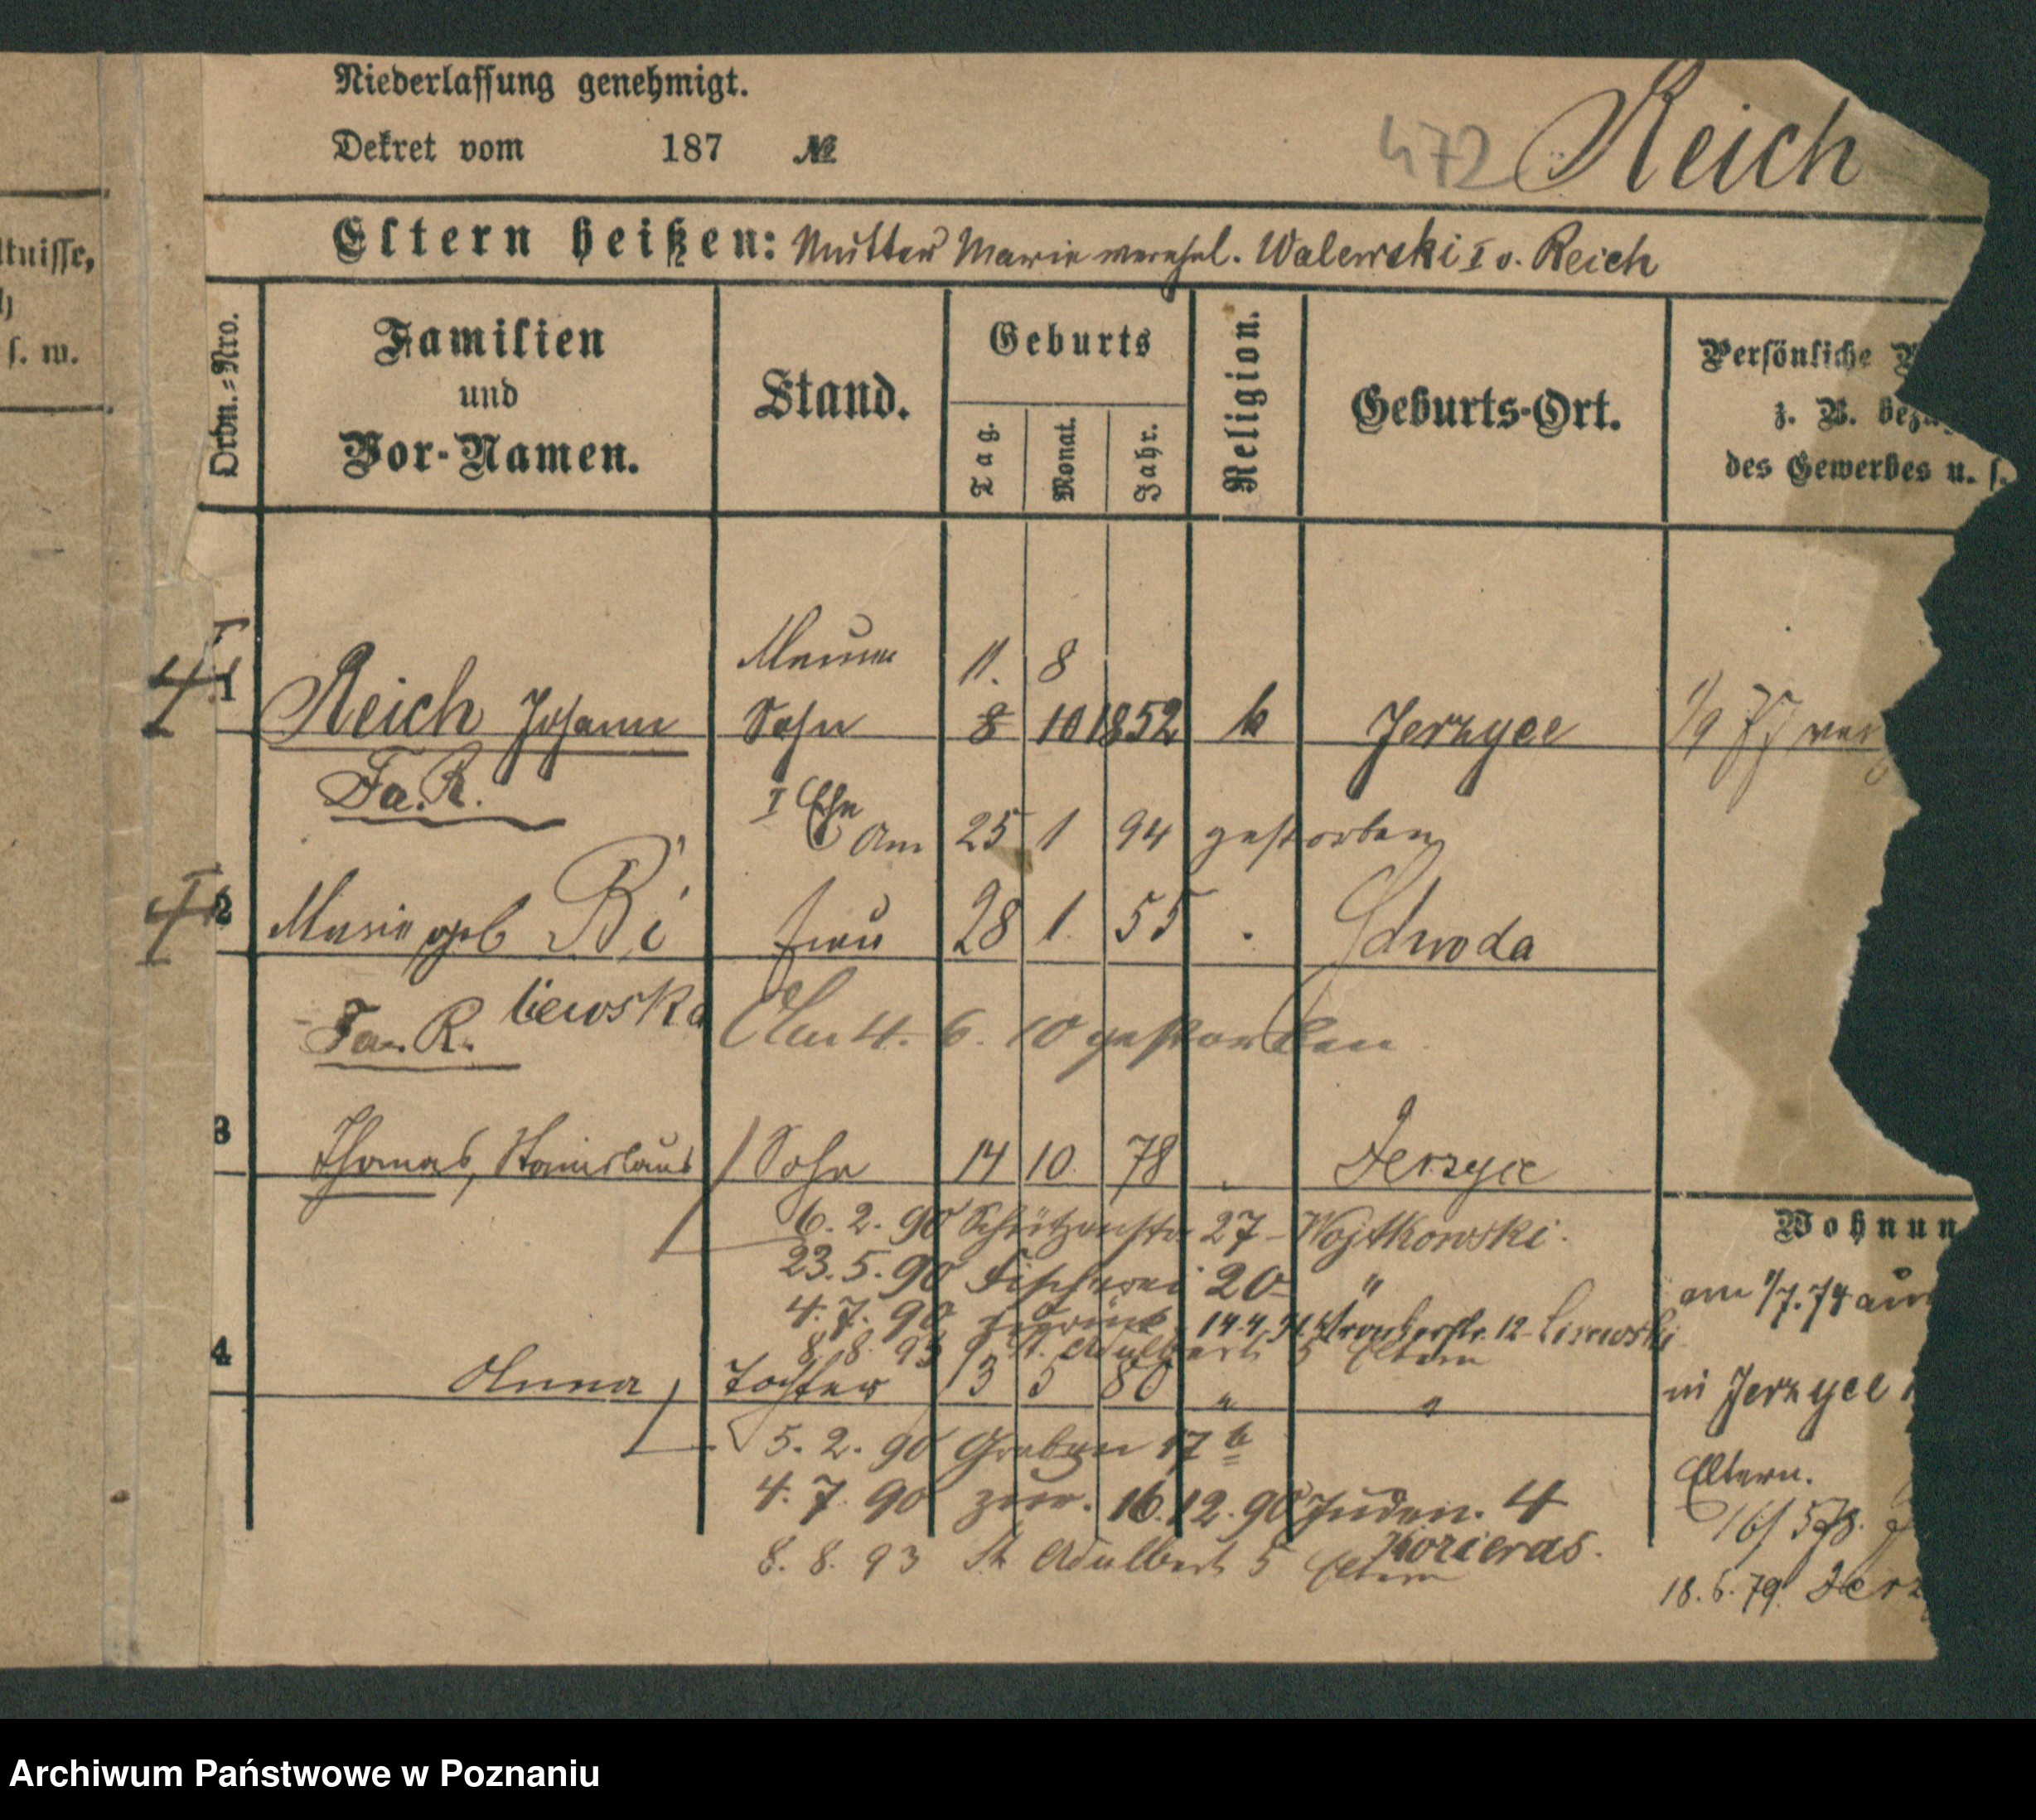 Niederlassung genehmigt.
Dekret vom 187 №
472 Reich
ltnisse,
s. w.
Eltern heißen: Mutter Marie verehel. Walewski I v. Reich
Ordn.-Nro.
Familien und Vor-Namen.
Stand.
Geburts
Tag.
Monat.
Jahr.
Religion.
Geburts-Ort.
Persönliche
z. B. bezü
des Gewerbes u. s.
Maurer 11. 8
1 Reich Johann Sohn 8 10 1852 k Jerzyce
Fa. R. I Ehe
Am 25 1 94 gestorben
2 Marie geb Bi Frau 28 1. 55 . Schroda
liewska
Fa. R. Am 4. 6. 10 gestorben
3 Thomas, Stanislaus Sohn 14 10. 78 Jerzyce
6. 2. 90 Schützenstr 27 - Wojtkowski.
23. 5. 90 Fischerei 20 "
4. 7. 90 zurück 14.4.91 12 Lisewski
8. 8. 93 St. Adalbert 5 Eltern
4 Anna, Tochter 13 5 80 " "
5. 2. 90 Graben 17 b
4. 7. 90 zur. 16.12.90 Juden. 4
8. 8. 93 St Adalbert 5 Eltern
Wohnun
am 1/7.74 aus
in Jerzyce
Eltern.
16/5 78.
18. 6. 79. Jerz
Archiwum Państwowe w Poznaniu